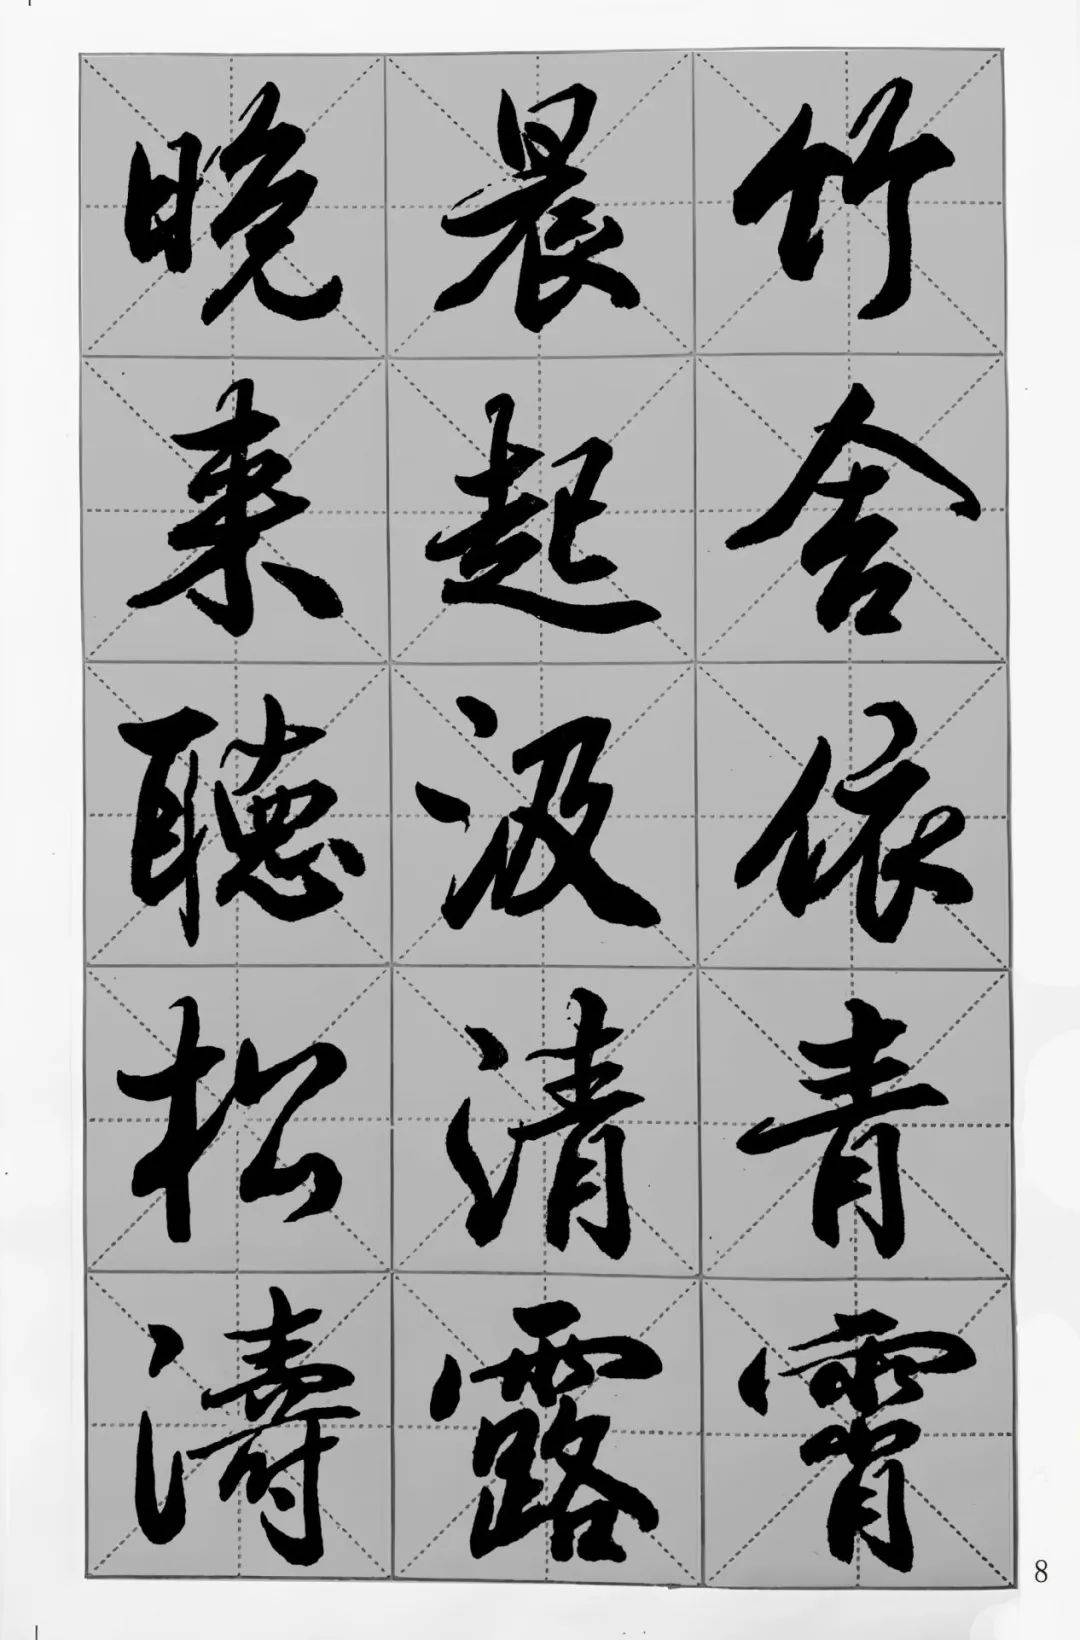 竹舍依青霄
晨起汲清露
晚来聽松濤
8